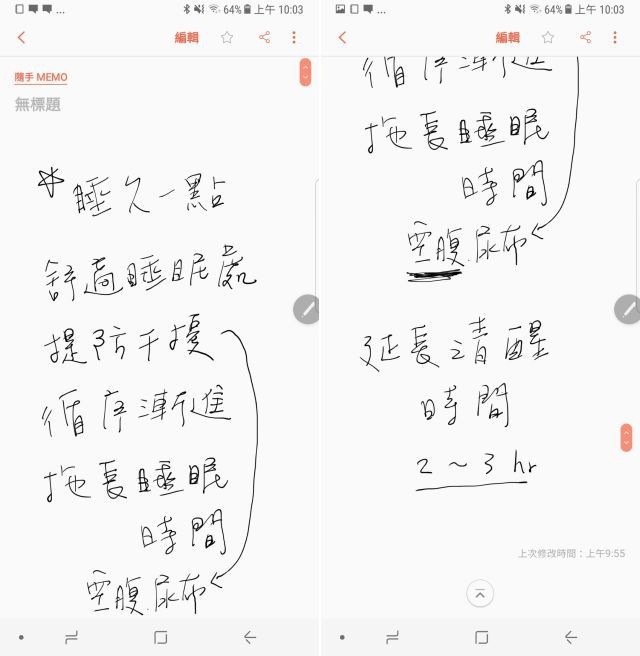 ... 64% 上午 10:03
編輯
隨手 MEMO
無標題
睡久一點
舒適睡眠處
提防干擾
循序漸進
拖長睡眠
時間
空腹.尿布
... 64% 上午 10:03
編輯
循序漸進
拖長睡眠
時間
空腹.尿布
延長清醒
時間
2~3 hr
上次修改時間：上午9:55